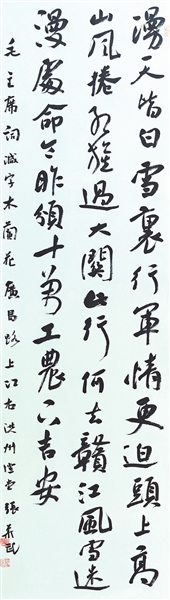 漫天皆白雪裏行軍情更迫頭上高
山風捲紅旗過大關此行何去贛江風雪迷
漫處命令昨頒十萬工農下吉安
毛主席詞減字木蘭花廣昌路上江右洪州張